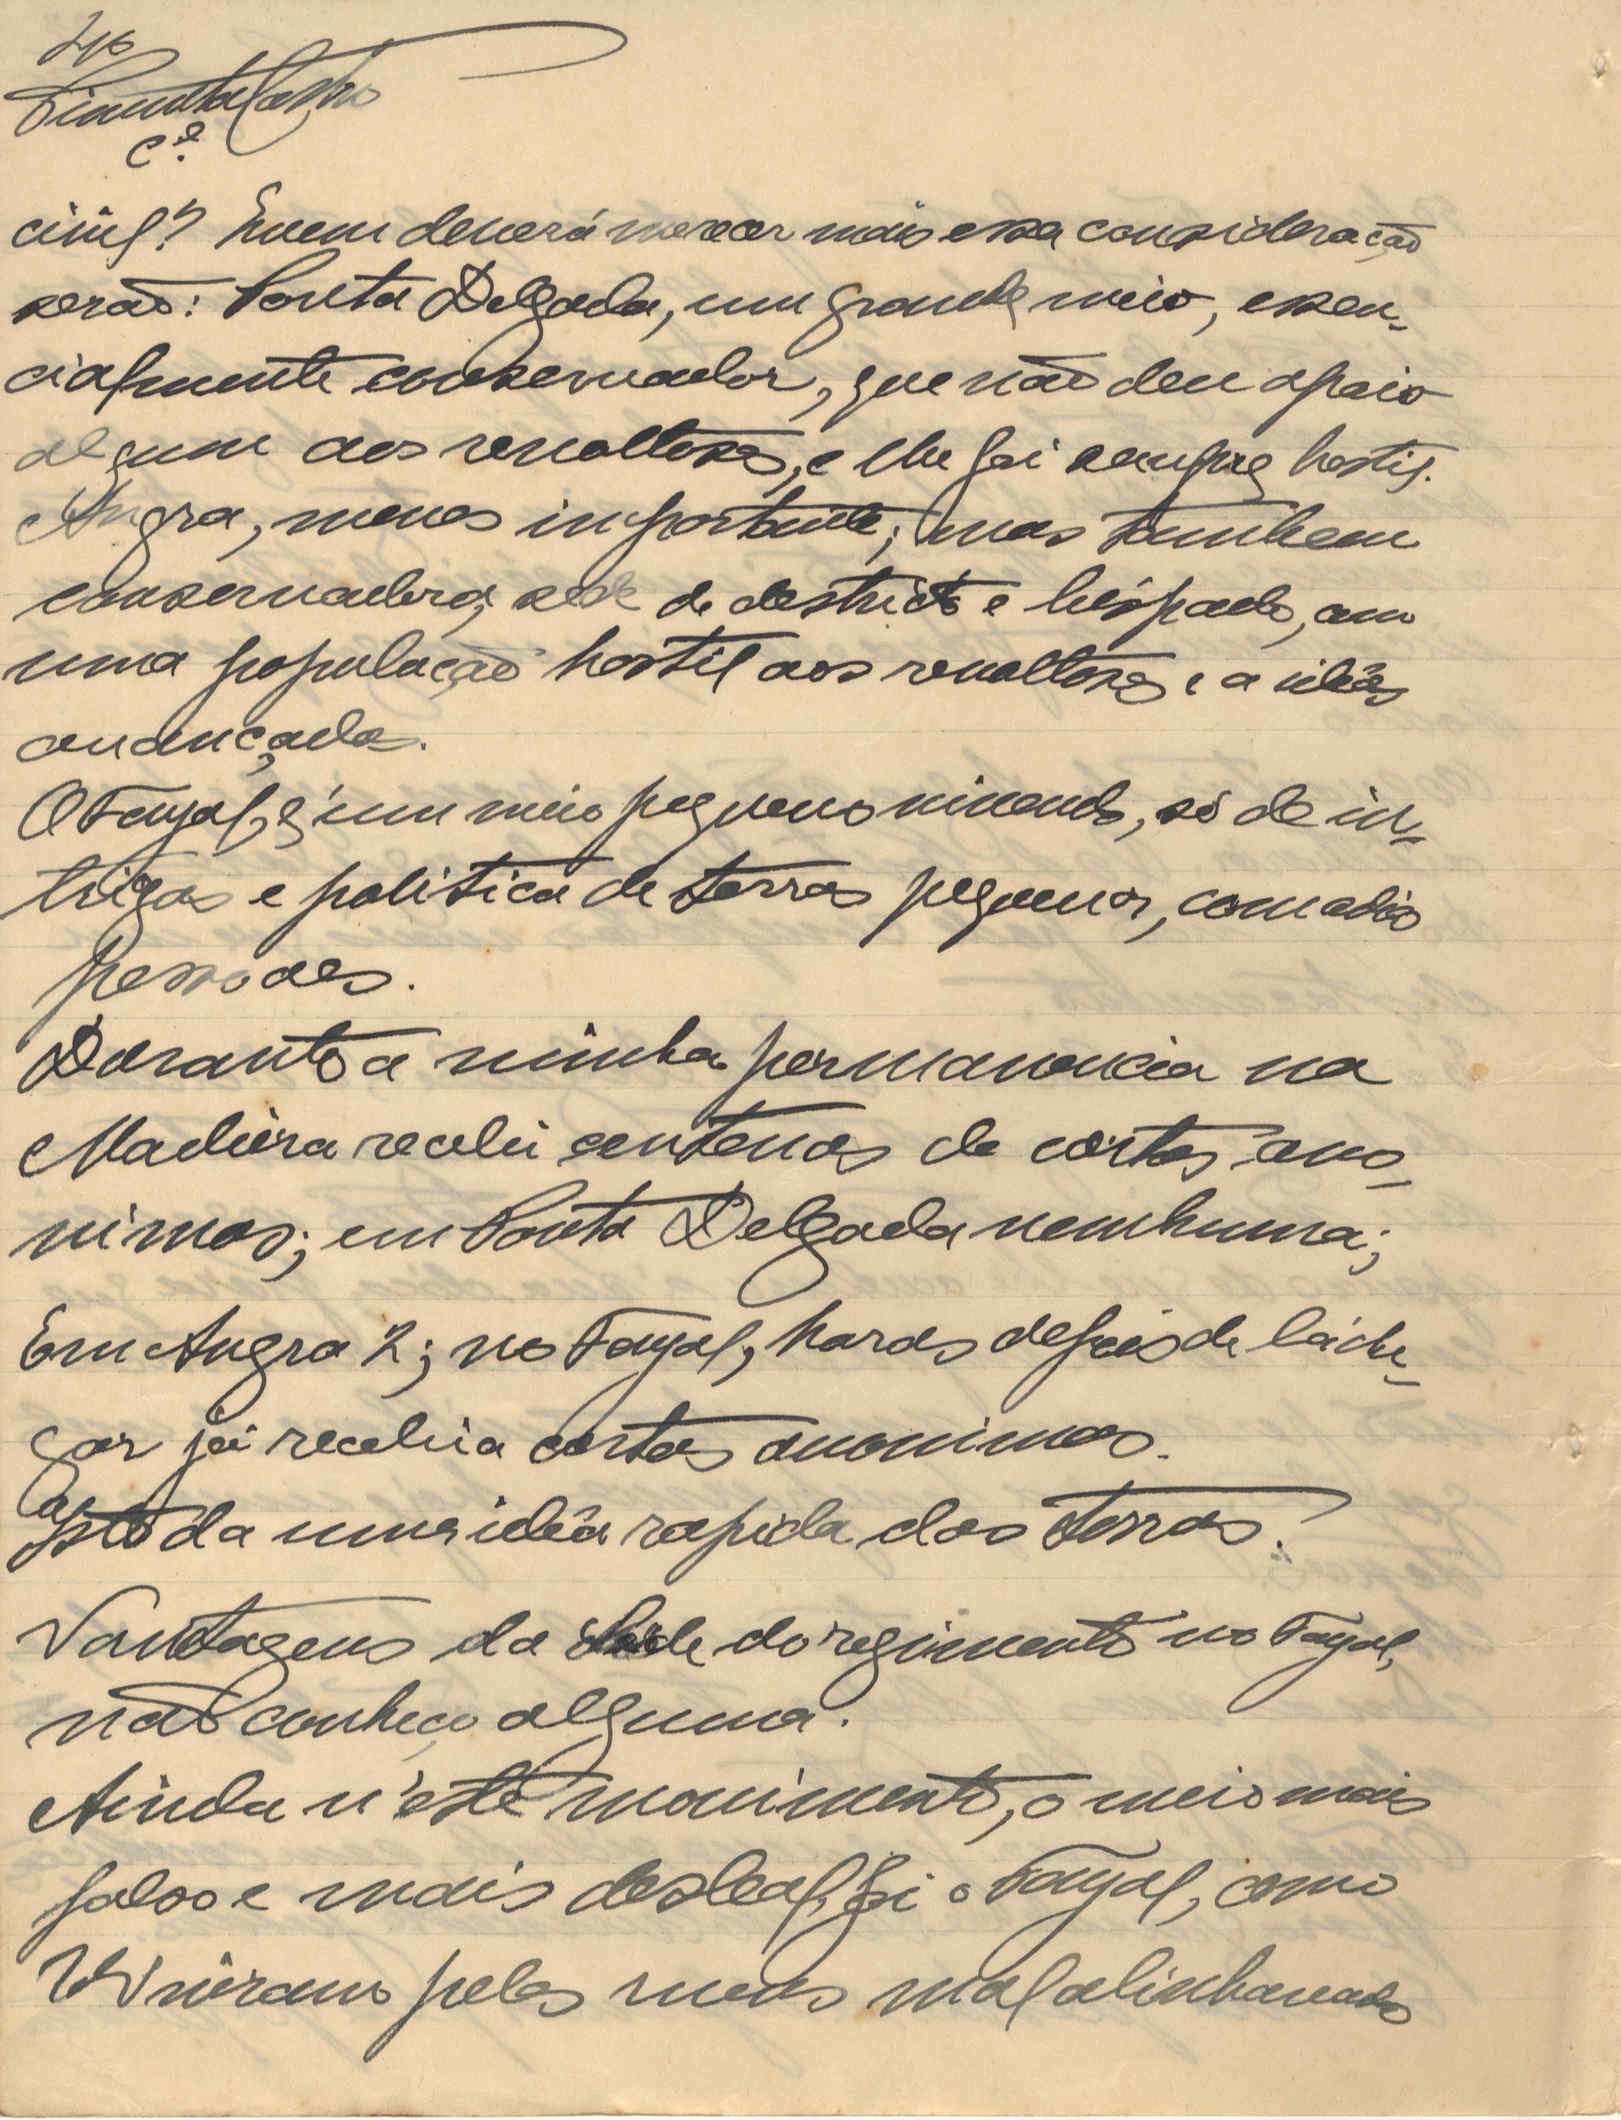 Pimenta Castro
C.el
civil? Quem deverá merecer mais essa consideração
serão: Ponta Delgada, um grande meio, essen-
cialmente conservador, que não deu apoio
algum aos revoltosos, e lhe foi sempre hostil.
Angra, menos importante; mas tambem
conservadora, séde de destricto e bispado, com
uma população hostil aos revoltosos e a idêas
avançadas.
O Fayal, é um meio pequeno vivendo, só de in-
trigas e politica de terras pequenas, com odios
pessoaes.
Durante a minha permanencia na
Madeira recebi centenas de cartas ano-
nimas; em Ponta Delgada nenhuma;
Em Angra 2; no Fayal, horas depois de lá che-
gar já recebia cartas anonimas.
Isto da uma idêa rapida das terras.
Vantagens da Séde do regimento no Fayal,
não conheço alguma.
Ainda n'este movimento, o meio mais
falso e mais desleal, foi o Fayal, como
V. viram pelos meus mal alinhavados